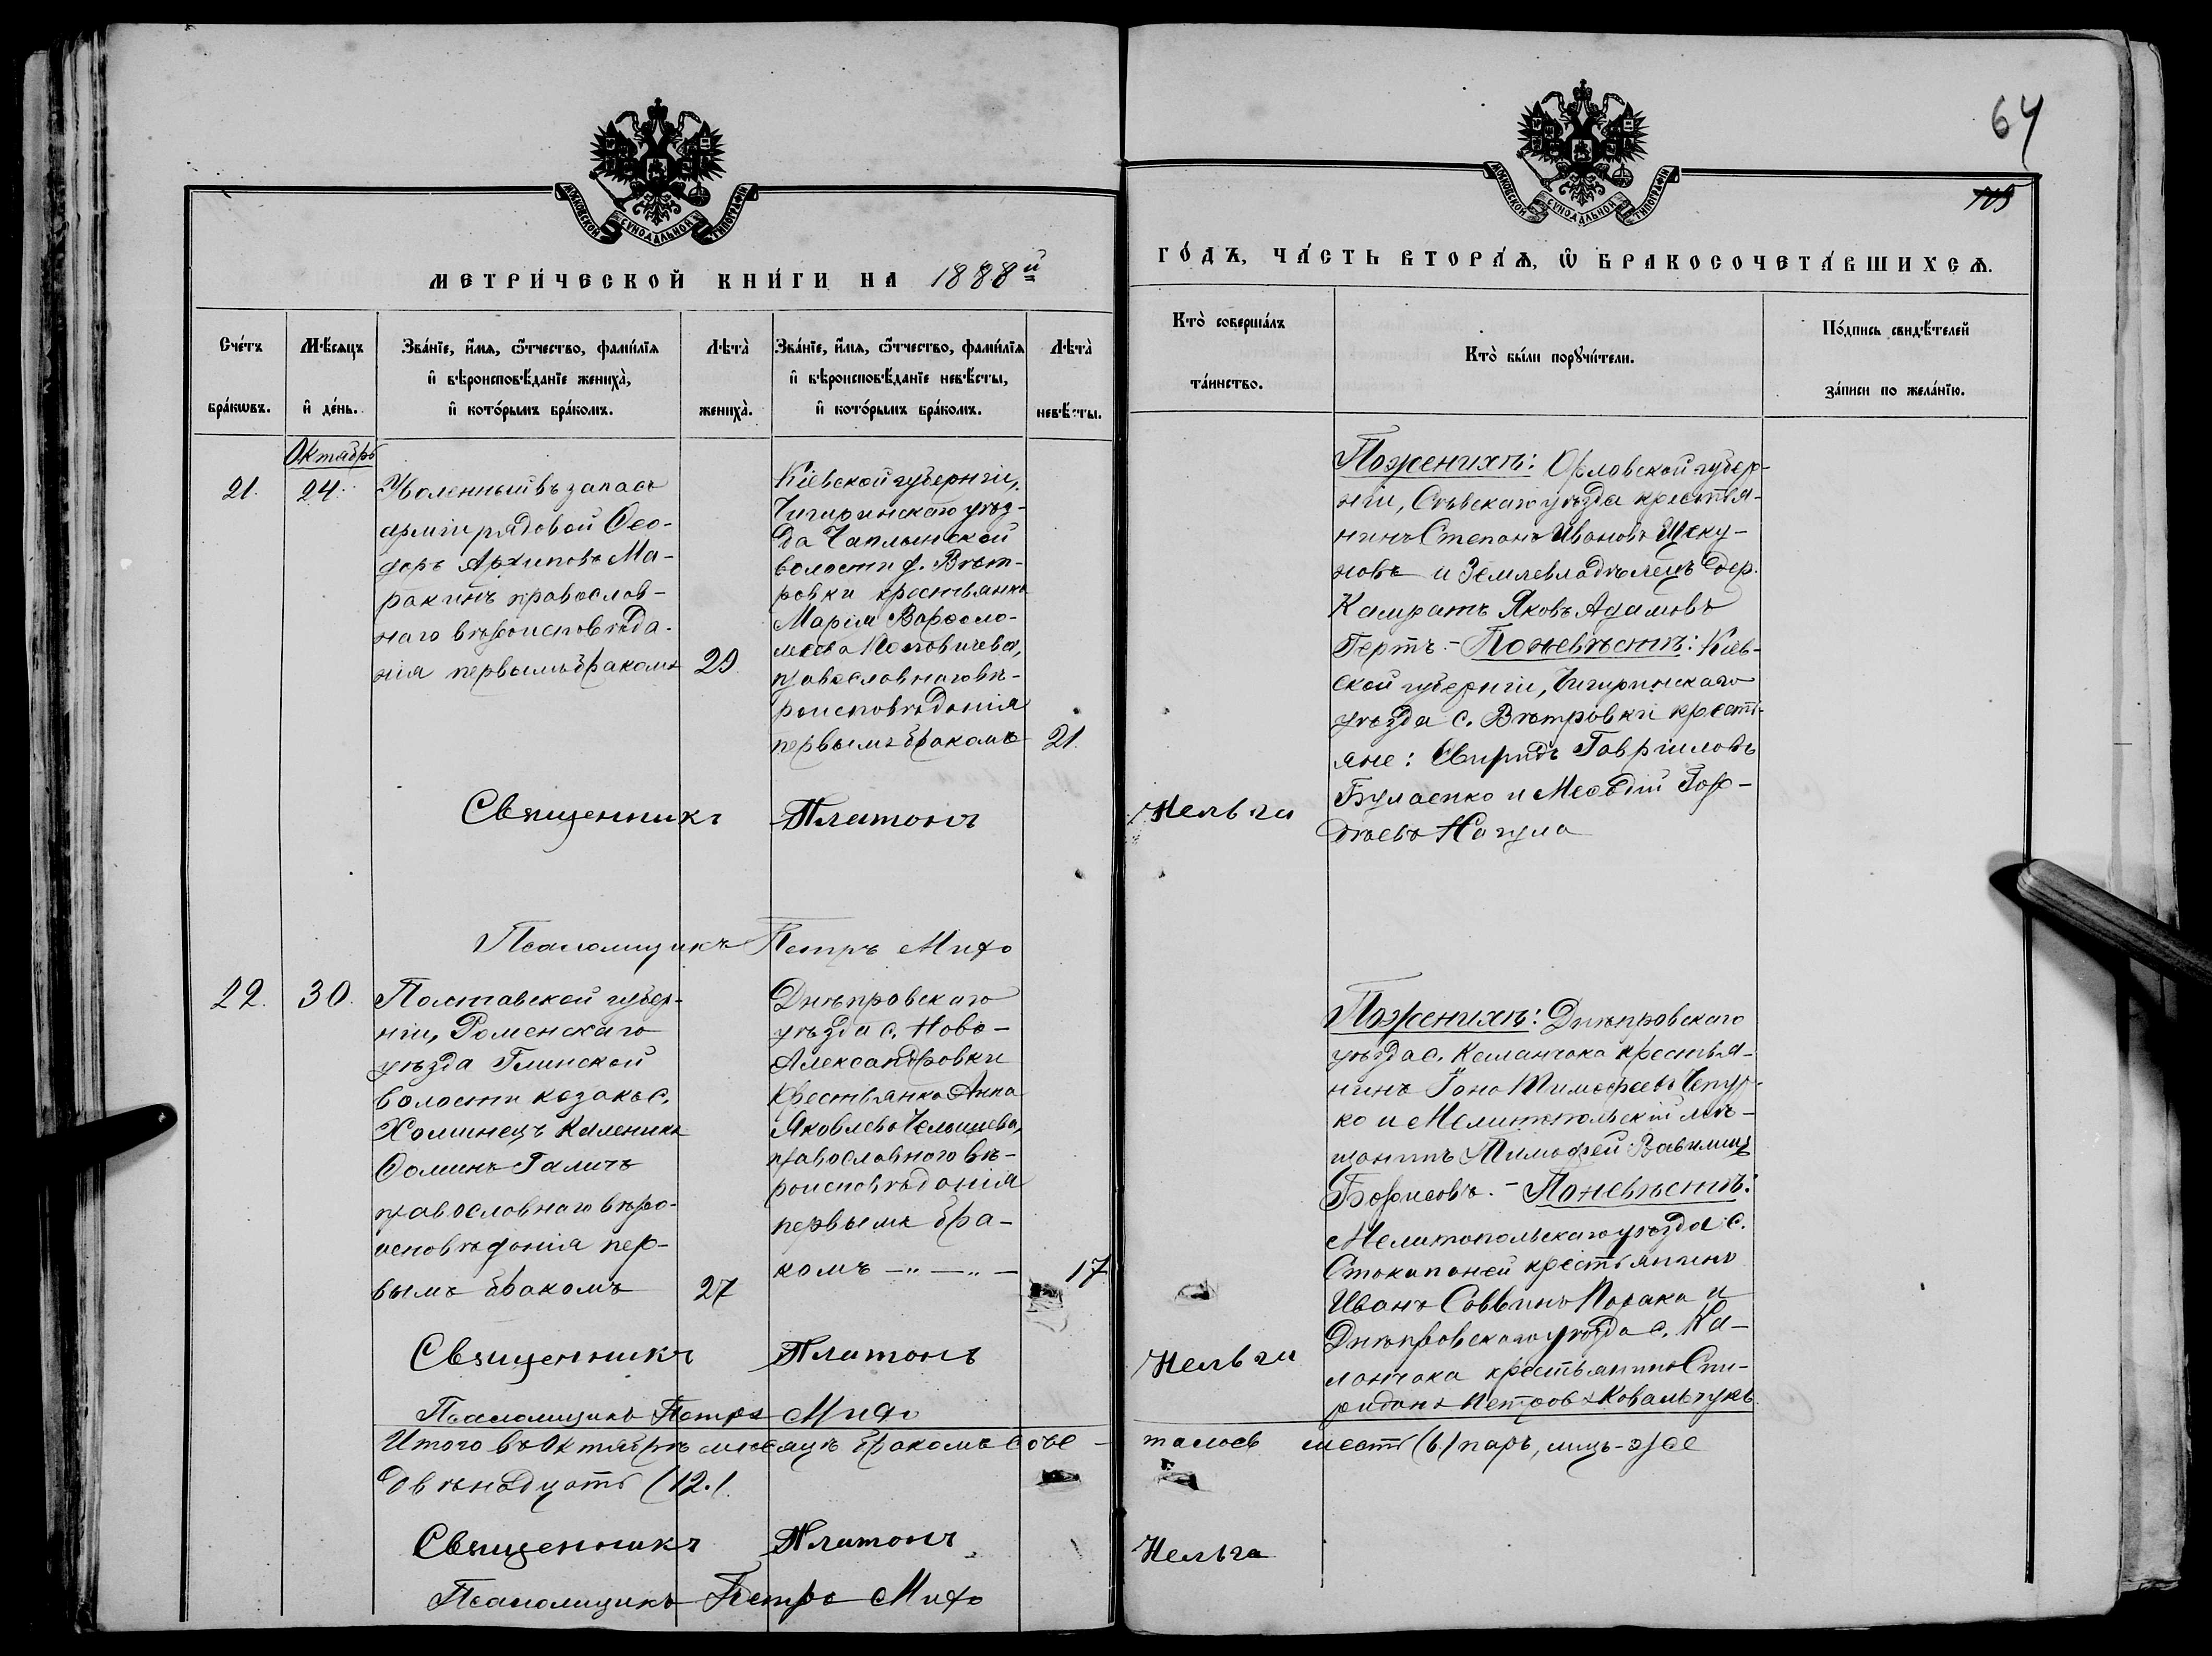 64
105
МОСКОВСКОЙ СѴНОДАЛЬНОЙ ТИПОГРАФІИ
МОСКОВСКОЙ СѴНОДАЛЬНОЙ ТИПОГРАФІИ
МЕТРИ́ЧЕСКОЙ КНИ́ГИ НА 1888й
ГО́ДЪ, ЧА́СТЬ ВТОРА́Ѧ, Ѿ БРАКОСОЧЕТА́ВШИХСѦ.
Сче́тъ бра́кѡвъ.
Мѣ́сяцъ и҆ де́нь.
Зва́нїе, и҆́мя, ѻ҆́тчество, фами́лїя
и҆ вѣроисповѣ́данїе жениха̀,
и҆ кото́рымъ бра́комъ.
Лѣта̀ жениха̀.
Зва́нїе, и҆́мя, ѻ҆́тчество, фами́лїя
и҆ вѣроисповѣ́данїе невѣ́сты,
и҆ кото́рымъ бра́комъ.
Лѣта̀ невѣ́сты.
Кто̀ соверша́лъ
та́инство.
Кто̀ бы́ли порꙋчи́тели.
По́дпись свидѣ́телей
за́писи по жела́нїю.
Октябрь
21.
24.
Уволенный въ запасъ
арміи рядовой Ѳео-
доръ Архиповъ Ма-
ракинъ православ-
наго вѣроисповѣда-
нія первымъ бракомъ
29
Кіевской губерніи,
Чигиринскаго уѣз-
да Чаплинской
волости д. Вѣт-
ровки крестьянка
Марія Варѳоло-
меева
православнаго вѣ-
роисповѣданія
первымъ бракомъ
21.
По женихѣ: Орловской губер-
ніи, Сѣвскаго уѣзда крестья-
нинъ Степанъ Ивановъ Щеку-
новъ и Землевладѣлецъ дер.
Камратъ Яковъ Адамовъ
Гертъ. - По невѣстѣ: Кіев-
ской губерніи, Чигиринскаго
уѣзда с. Вѣтровки кресть-
яне: Свиридъ Гавріиловъ
Буласико и Меѳодій Гор-
дѣевъ Нагула
Священникъ Платонъ Нельга
Псаломщикъ Петръ Михо
22.
30.
Полтавской губер-
ніи, Роменскаго
уѣзда Глинской
волости козакъ с.
Хоминецъ Каленикъ
Ѳоминъ Галичъ
православнаго вѣро-
исповѣданія пер-
вымъ бракомъ
27
Днѣпровскаго
уѣзда с. Ново-
Александровки
крестьянка Анна
Яковлева Челышева,
православнаго вѣ-
роисповѣданія
первымъ бра-
комъ —„—„—
17
По женихѣ: Днѣпровскаго
уѣзда с. Каланчака крестья-
нинъ Іона Тимофеевъ Чепур-
ко и Мелитопольскій мѣ-
щанинъ Тимофей
Борисовъ. - По невѣстѣ:
Мелитопольскаго уѣзда с.
Стокопаней крестьянинъ
Иванъ Саввинъ Порака и
Днѣпровскаго уѣзда с. Ка-
ланчака крестьянинъ Спи-
ридонъ Петровъ Ковальчукъ
Священникъ Платонъ Нельга
Псаломщикъ Петръ Михо
Итого въ Октябрѣ мѣсяцѣ бракомъ соче-талось шесть (6) паръ, лицъ-же
двѣнадцать (12.)
Священникъ Платонъ Нельга
Псаломщикъ Петръ Михо